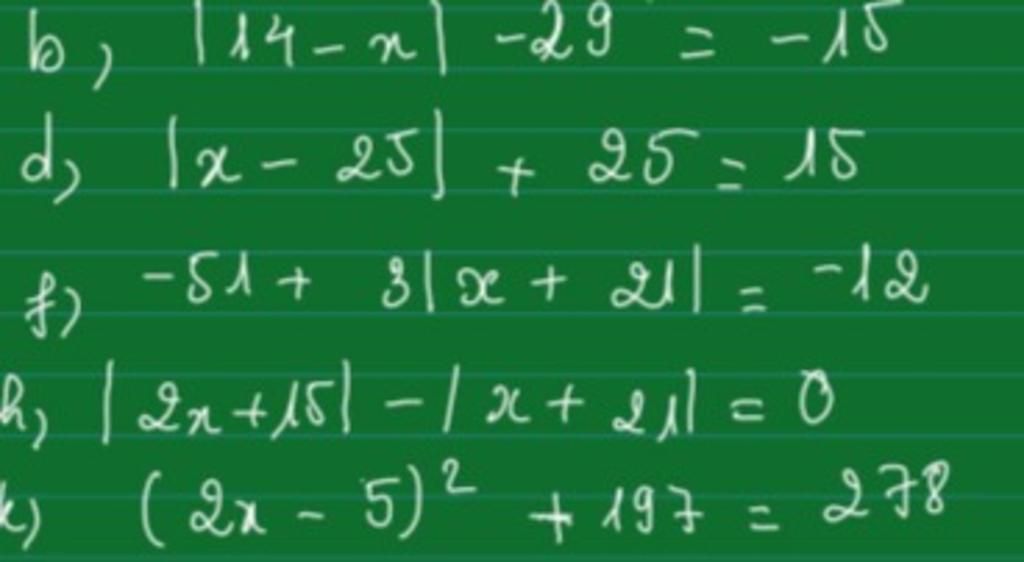 b, |14 - x| - 29 = -15
d, |x - 25| + 25 = 15
f) -51 + 3|x + 21| = -12
h, |2x + 15| - |x + 21| = 0
k) (2x - 5)² + 197 = 278